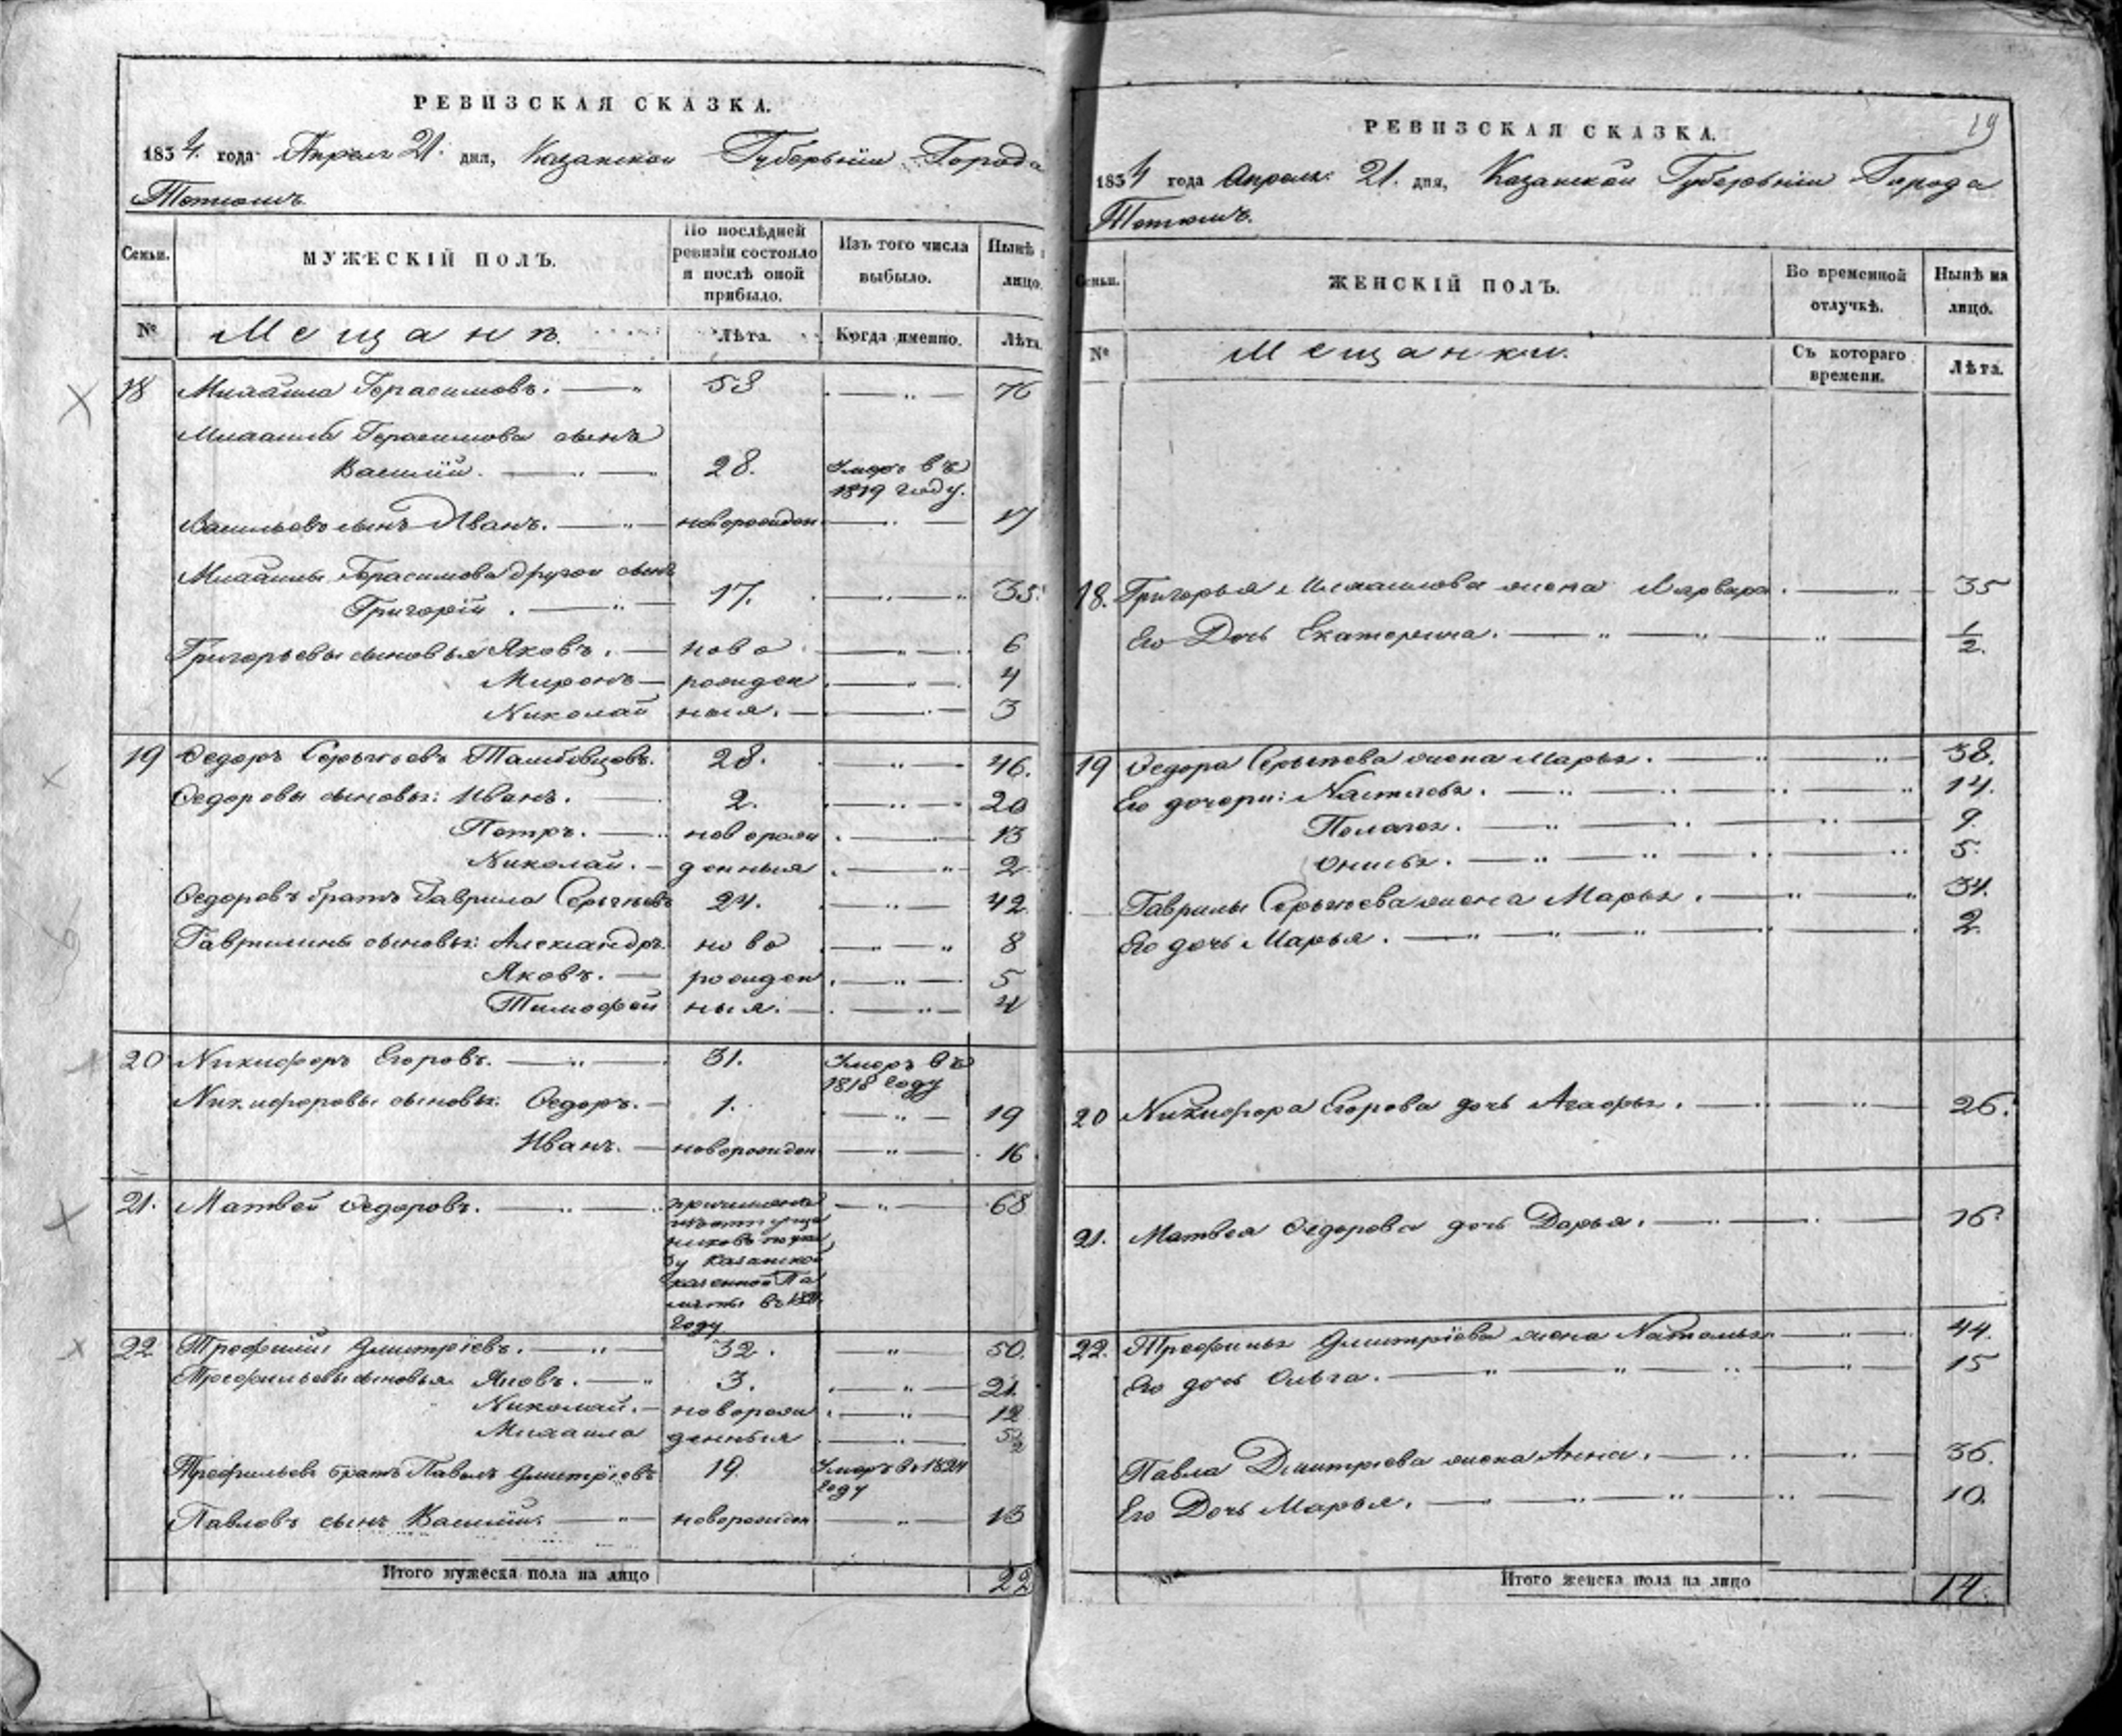 РЕВИЗСКАЯ СКАЗКА.
1834. года Апреля 21. дня, Казанской Губерніи Города
Тетюшъ.
Семьи.
МУЖЕСКІЙ ПОЛЪ.
По послѣдней ревизіи состояло и послѣ оной прибыло.
Изъ того числа выбыло.
Нынѣ лицо.
№
Мещанѣ.
Лѣта.
Когда именно.
Лѣта
18 Михайла Герасимовъ. 53 76
Михайлы Герасимова сынъ
Василій. 28. Умеръ въ
1819 году.
Васильевъ сынъ Иванъ. новорожден 17
Михайлы Герасимова другой сынъ
Григорій. 17. 35.
Григорьевы сыновья Яковъ. ново 6
Миронъ рожден 4
Николай ныя. 3
19 Ѳедоръ Сергѣевъ Тамбовцовъ. 28. 46.
Ѳедоровы сыновья: Иванъ. 2. 20
Петръ. новорож 13
Николай. денныя 2.
Ѳедоровъ братъ Гаврила Сергѣевъ 24. 42
Гаврилины сыновья: Александръ. ново 8
Яковъ. рожден 5
Тимофей ныя. 4
20 Никифоръ Егоровъ. 31. Умеръ въ
1818 году
Никифоровы сыновья: Ѳедоръ. 1. 19
Иванъ. новорожден 16
21. Матвей Ѳедоровъ. 68
причисленъ
ву Казанской
казенной Па
латы въ
году
22 Трефилій Дмитріевъ. 32. 50.
Трефильевы сыновья Яковъ. 3. 21.
Николай. новорож 12
Михайла денныя
Трефильевъ братъ Павелъ Дмитріевъ 19. Умеръ въ 1824
году
Павловъ сынъ Василій. новорожден 13
Итого мужеска пола на лицо 22
19
РЕВИЗСКАЯ СКАЗКА.
1834 года Апреля 21. дня, Казанской Губерніи Города
Тетюшъ.
Семьи.
ЖЕНСКІЙ ПОЛЪ.
Во временной отлучкѣ.
Нынѣ на лицо.
№
Мещанки.
Съ котораго времени.
Лѣта.
18. Григорья Михайлова жена Варвара. 35
Его Дочь Екатерина. 1/2.
19 Ѳедора Сергѣева жена Марья. 38.
Его дочери: Настасья. 14.
Пелагея. 9.
Онисья. 5.
Гаврилы Сергѣева жена Марья. 34.
Его дочь Марья. 2.
20 Никифора Егорова дочь Агафья. 26.
21. Матвея Ѳедорова дочь Дарья. 16.
22. Трефилья Дмитріева жена Наталья. 44.
Его дочь Ольга. 15
Павла Дмитріева жена Анна. 36.
Его Дочь Марья. 10.
Итого женска пола на лицо 14.